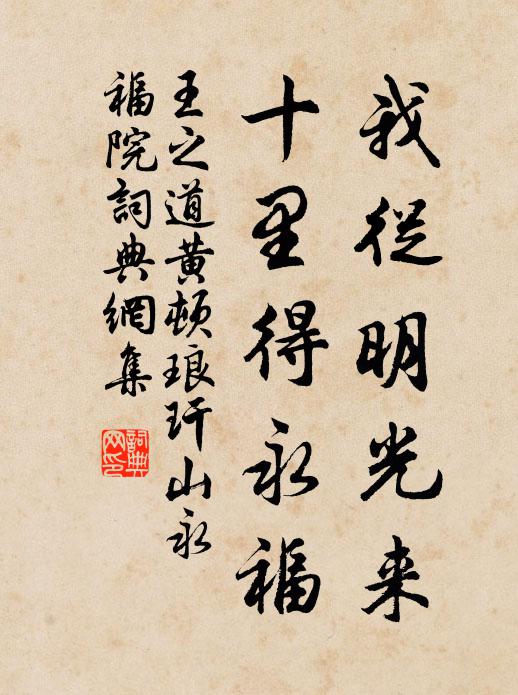 我從明光来
十里得永福
王之道黄頓琅玕山永
福院詞典網集
詞典
网印